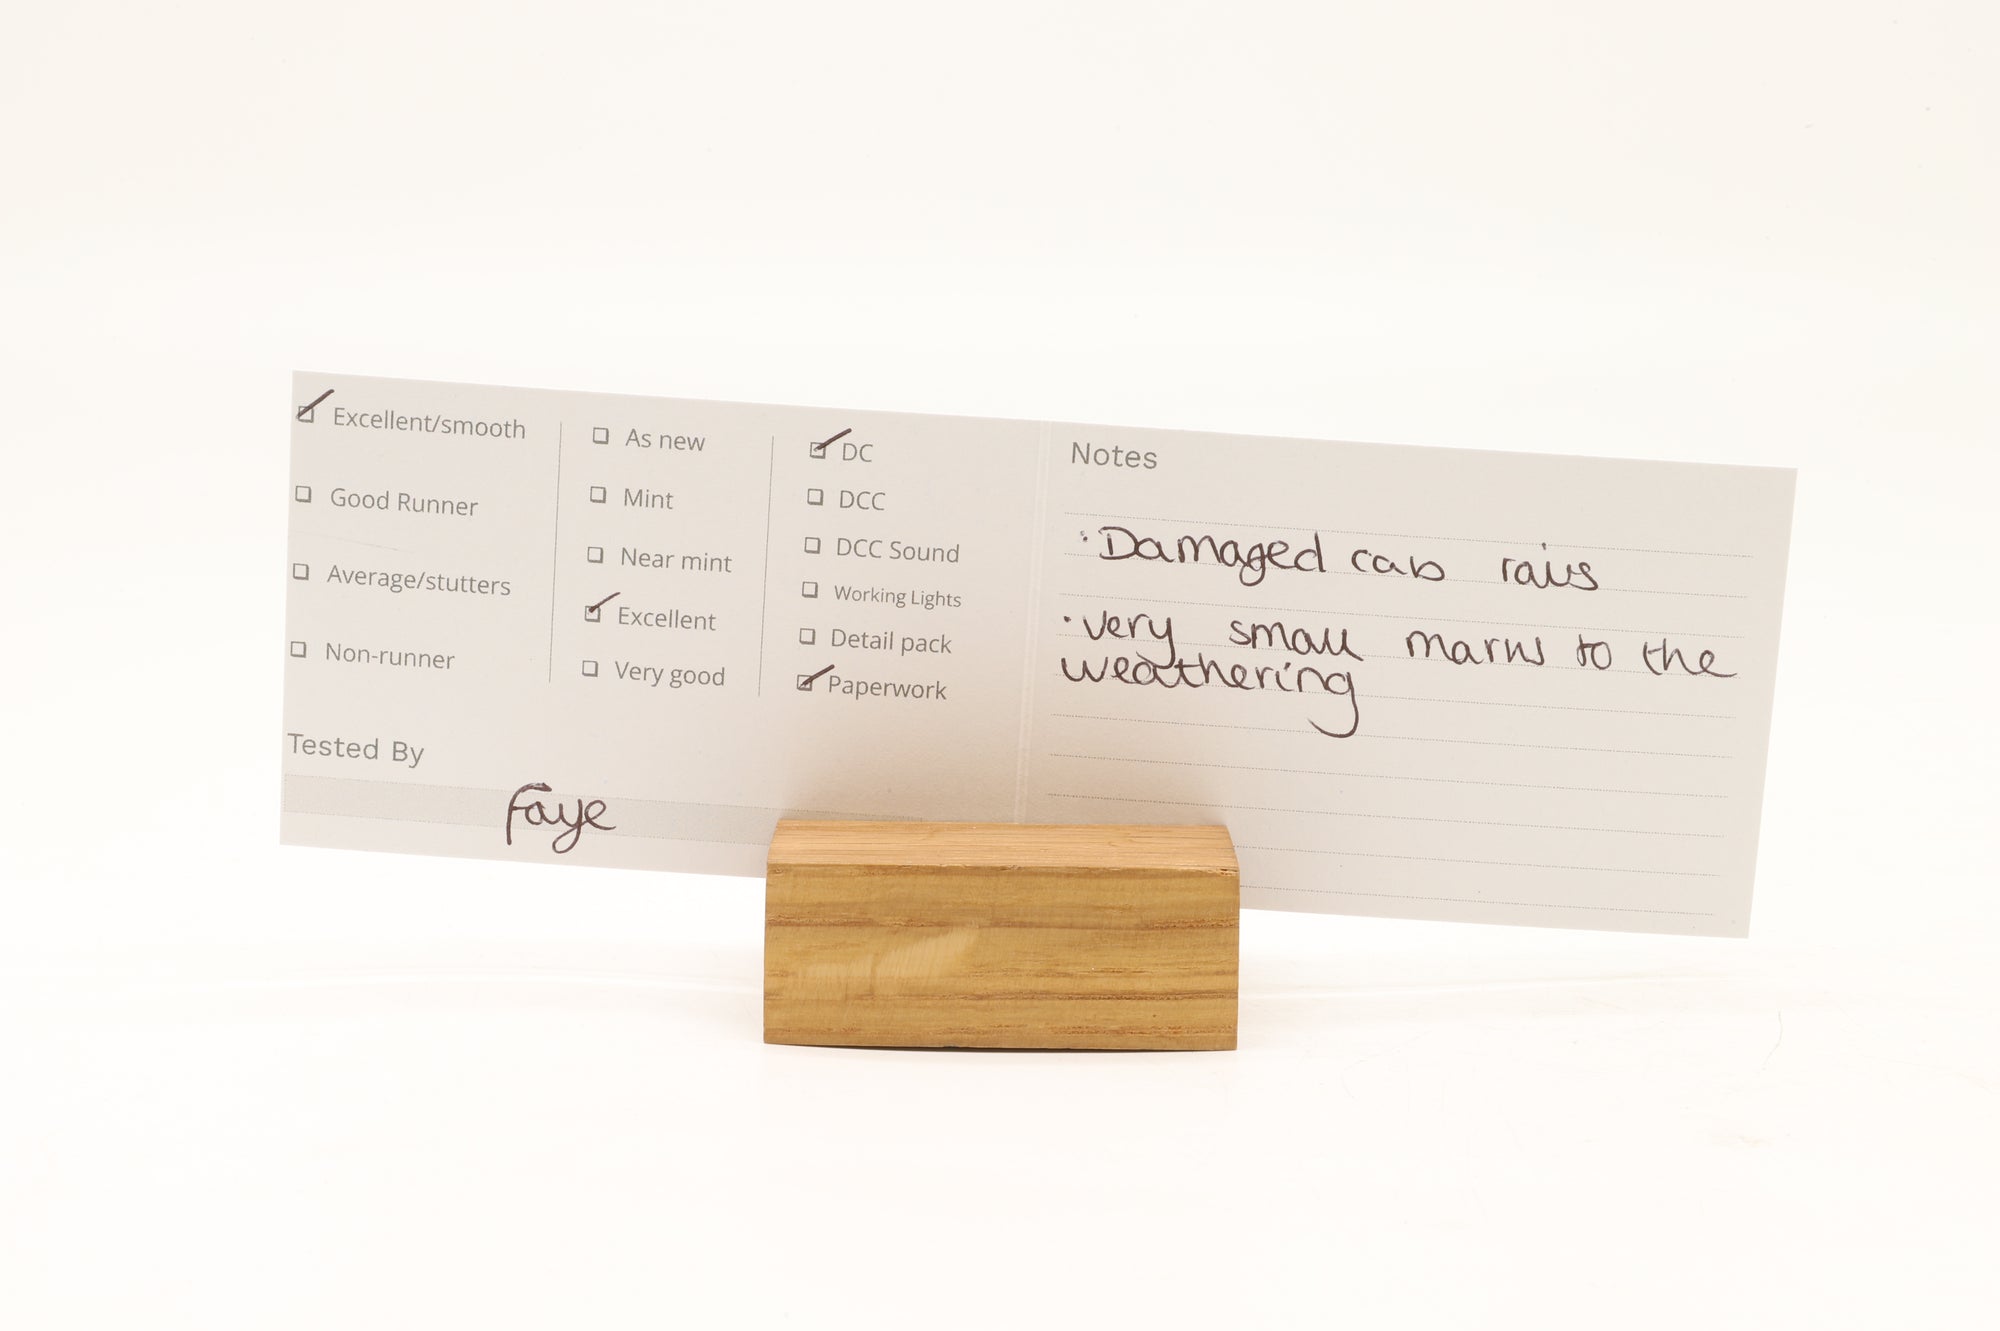 Excellent/smooth
Good Runner
Average/stutters
Non-runner
As new
Mint
Near mint
Excellent
Very good
DC
DCC
DCC Sound
Working Lights
Detail pack
Paperwork
Tested By
Faye
Notes
· Damaged cab rails
· very small marks to the
weathering